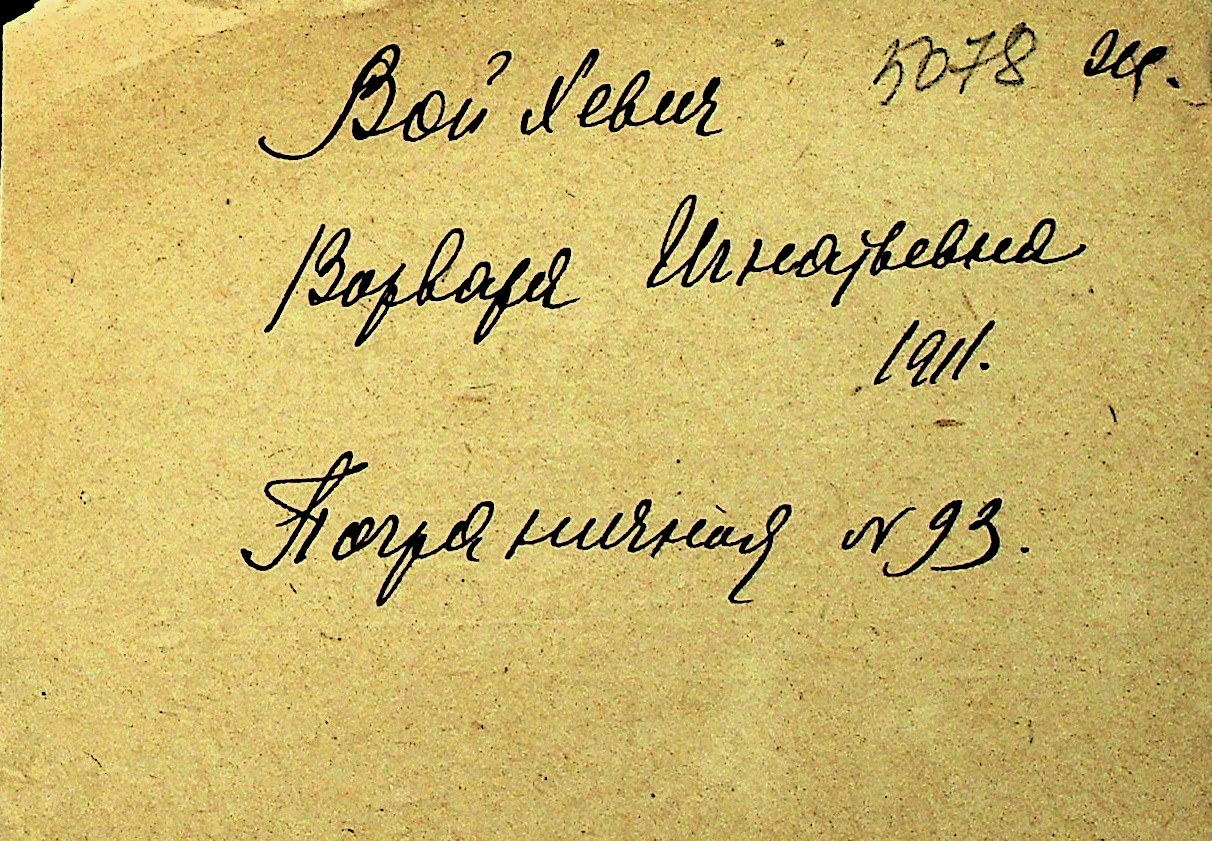 Войхевич 5078 Ж.
Варвара Игнатьевна
1911.
Пограничная № 93.